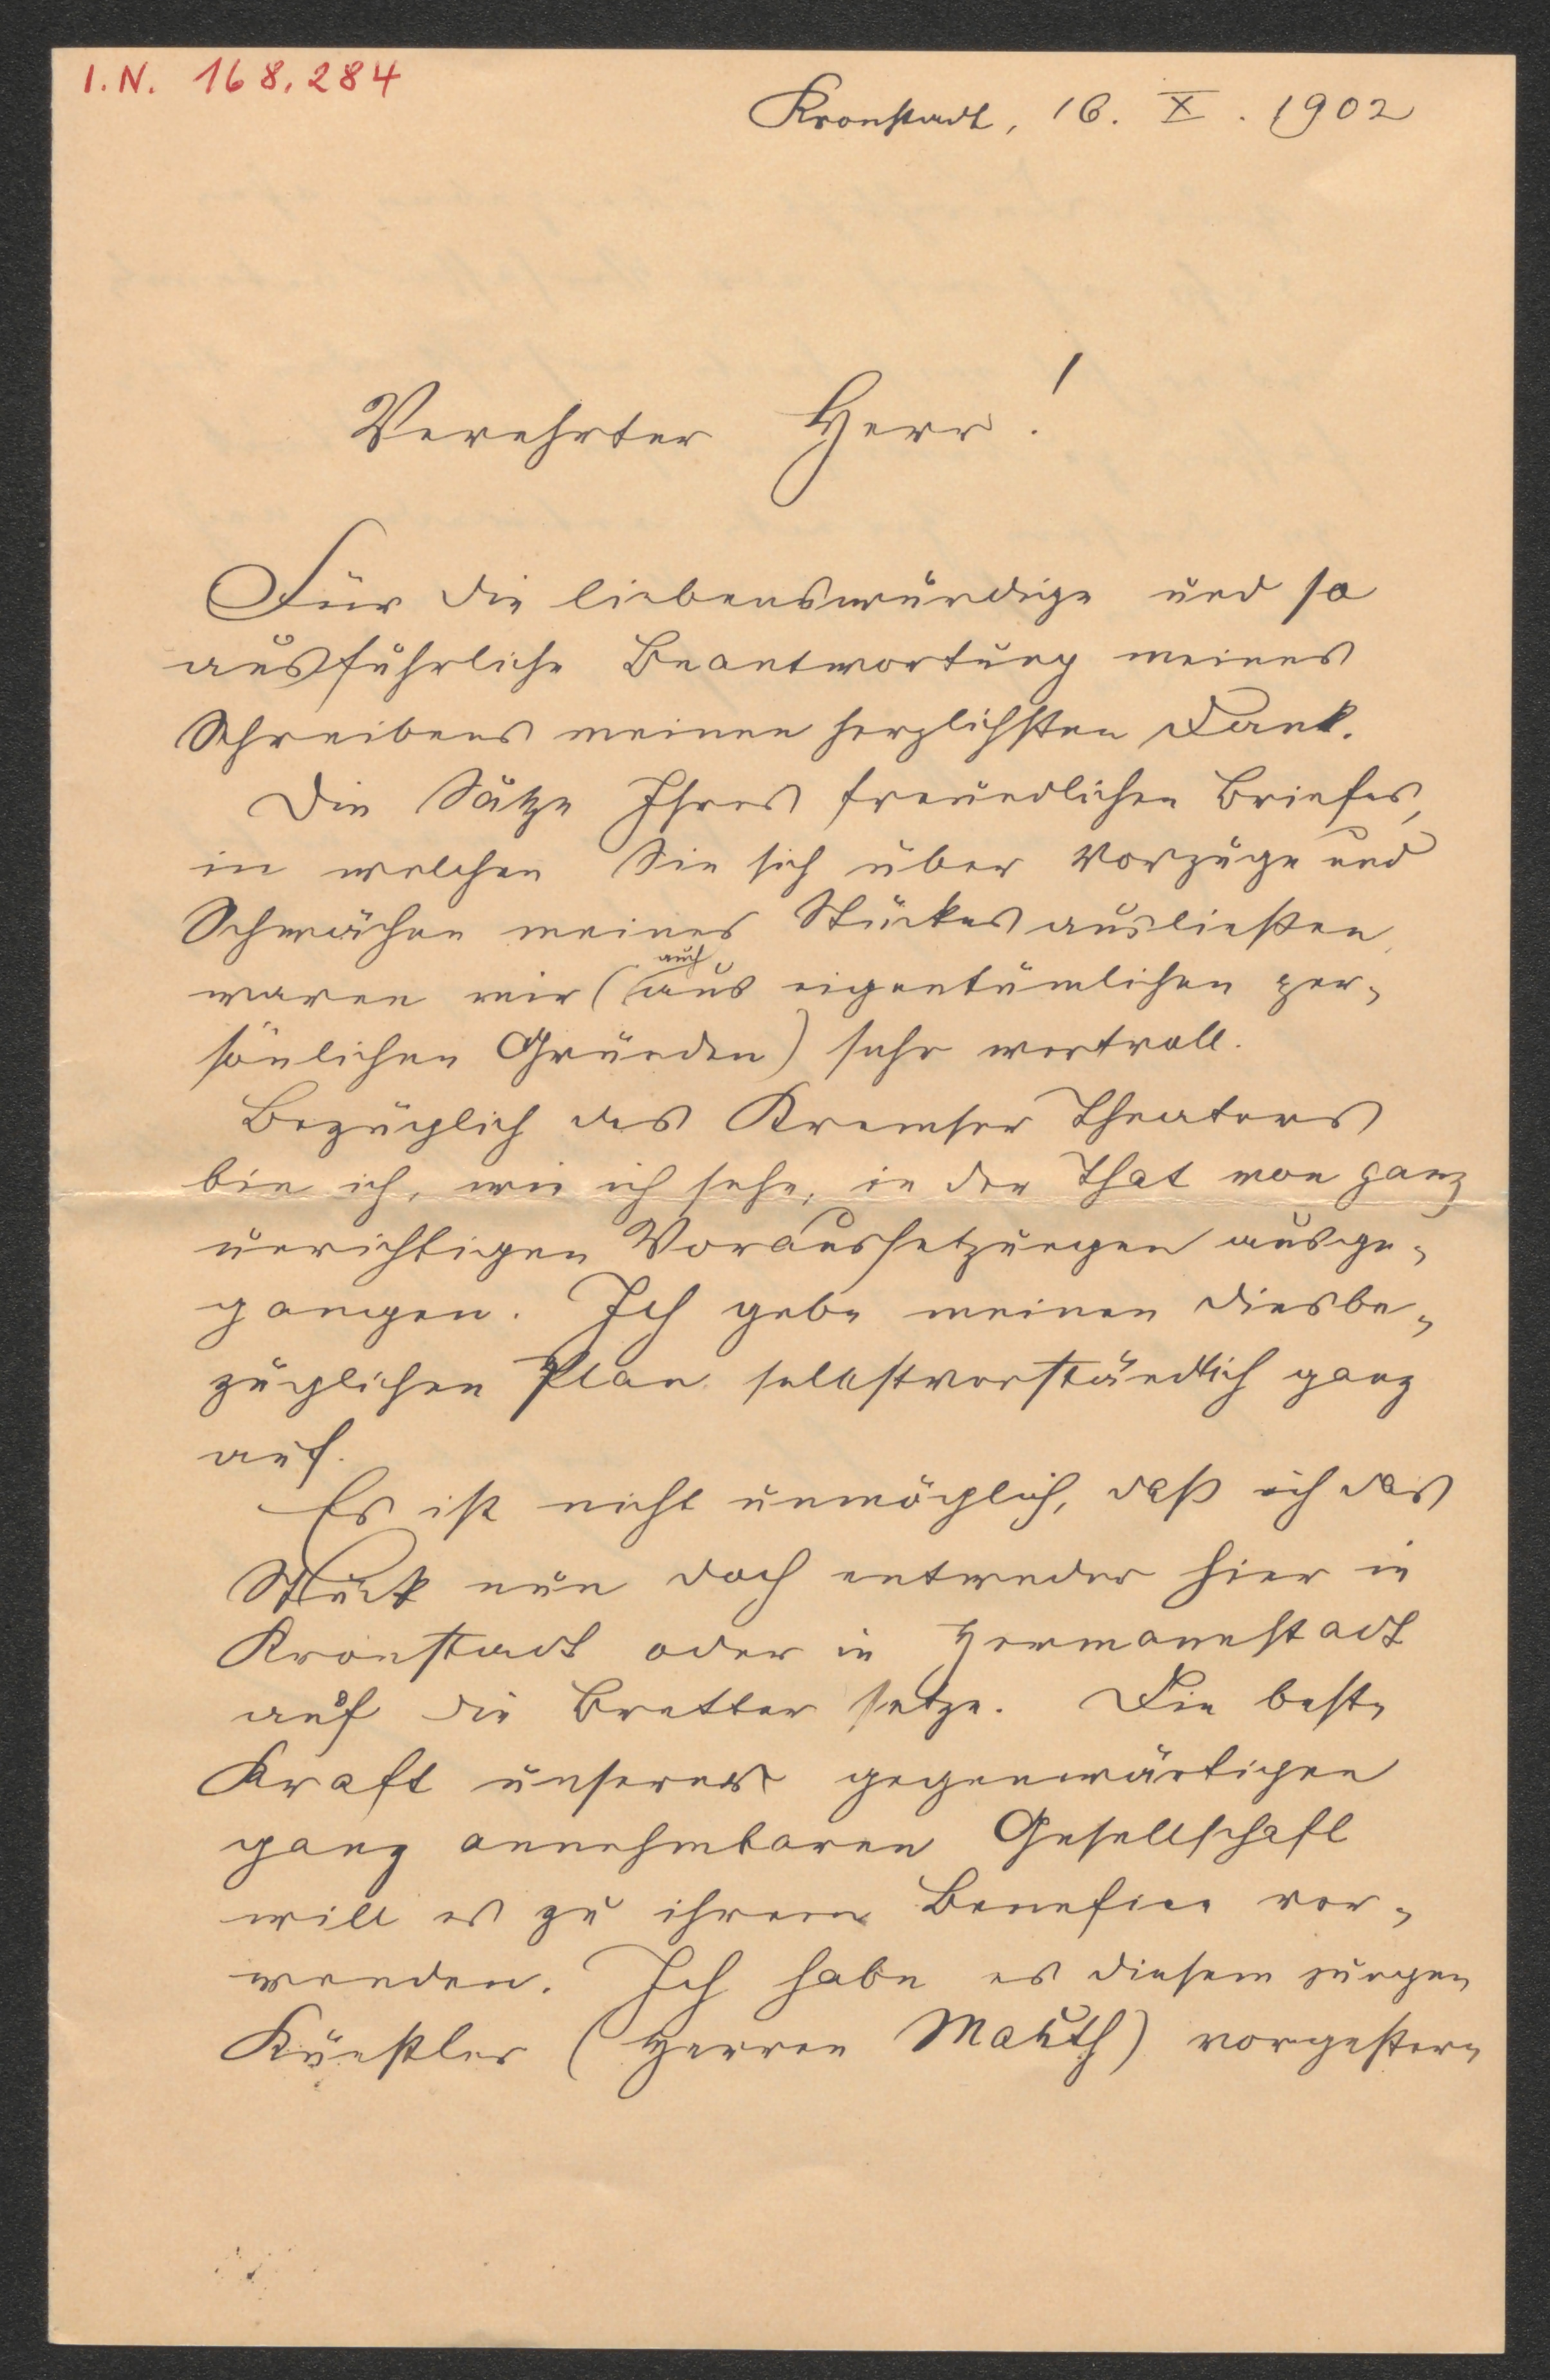 I.N. 168.284
Kronstadt, 16. X. 1902
Verehrter Herr!
Für die liebenswürdige und so
ausführliche Beantwortung meines
Schreibens meinen herzlichsten Dank.
Die Sätze Ihres freundlichen Briefes,
in welchen Sie sich über Vorzüge und
Schwächen meines Stückes ausließen,
auch
waren mir (aus eigentümlichen per-
sönlichen Gründen) sehr wertvoll.
Bezüglich des Kremser Theaters
bin ich, wie ich sehe, in der That von ganz
unrichtigen Voraussetzungen ausge-
gangen. Ich gebe meinen diesbe-
züglichen Plan selbstverständlich ganz
auf.
Es ist nicht unmöglich, daß ich das
Stück nun doch entweder hier in
Kronstadt oder in Hermannstadt
auf die Bretter setze. Die beste
Kraft unserer gegenwärtigen
ganz annehmbaren Gesellschaft
will es zu ihrem Benefice ver-
wenden. Ich habe es diesem jungen
Künstler (Herren Mauth) vorgestern